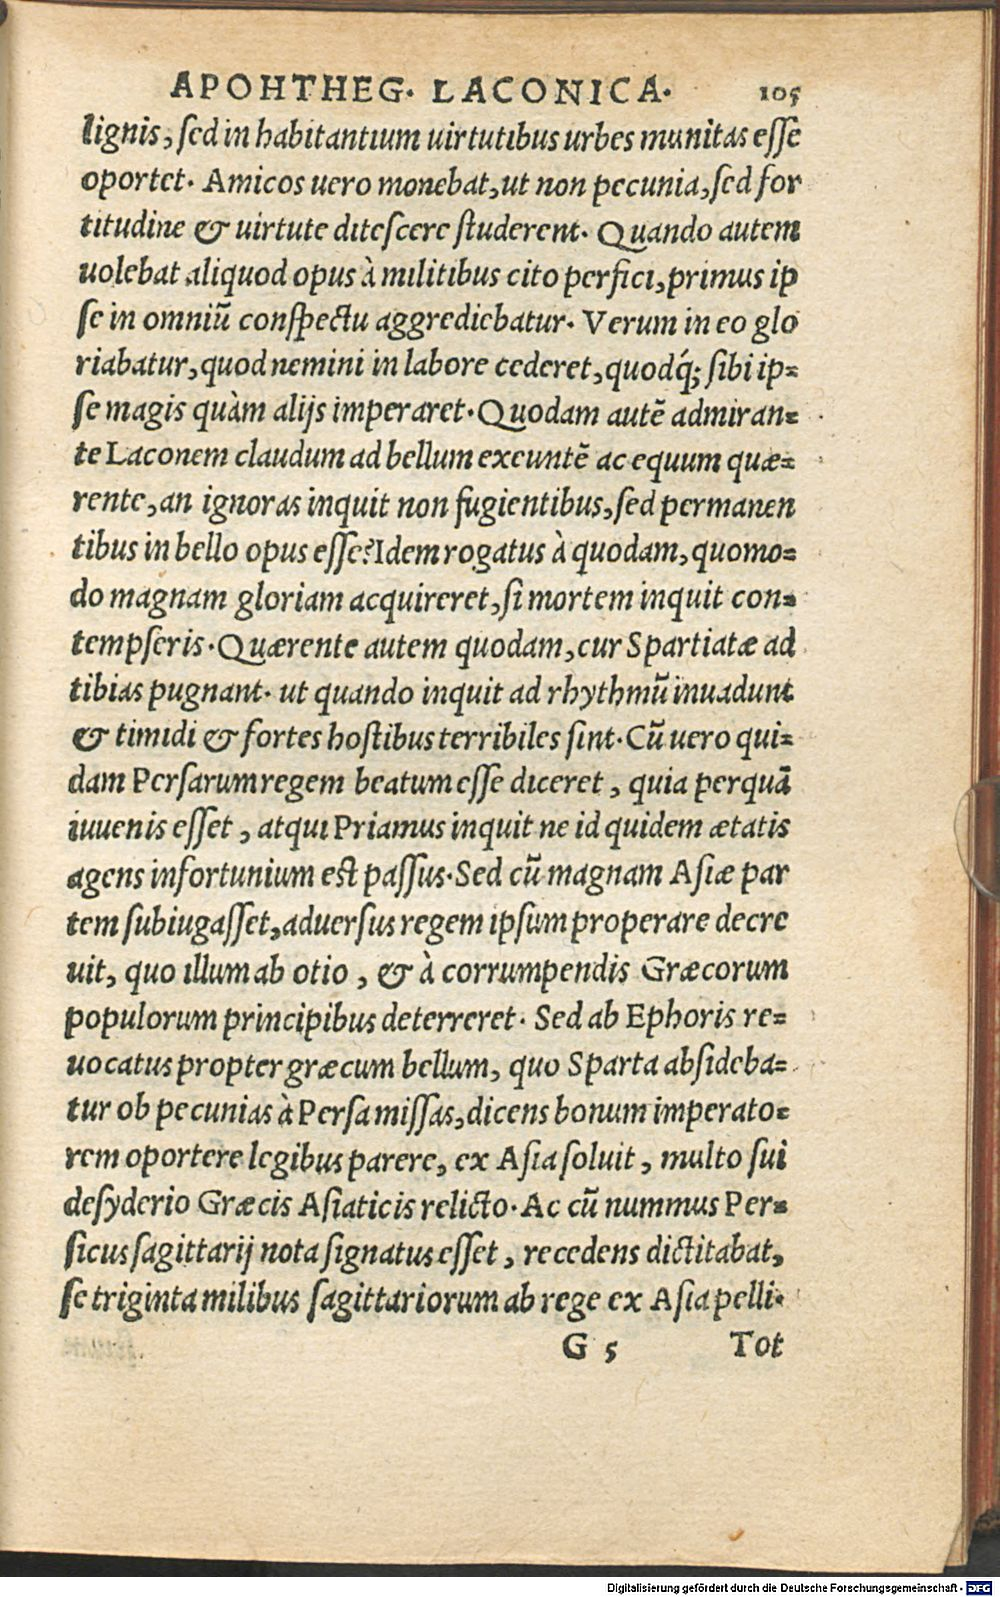 APOHTHEG. LACONICA. 105
lignis, sed in habitantium uirtutibus urbes munitas esse
oportet. Amicos uero monebat, ut non pecunia, sed for
titudine & uirtute ditescere studerent. Quando autem
uolebat aliquod opus à militibus cito perfici, primus ip
se in omniū conspectu aggrediebatur. Verum in eo glo
riabatur, quod nemini in labore cederet, quodq́; sibi ip=
se magis quàm alijs imperaret. Quodam autē admiran=
te Laconem claudum ad bellum exeuntē ac equum quæ=
rente, an ignoras inquit non fugientibus, sed permanen
tibus in bello opus esse? Idem rogatus à quodam, quomo=
do magnam gloriam acquireret, si mortem inquit con=
tempseris. Quærente autem quodam, cur Spartiatæ ad
tibias pugnant. ut quando inquit ad rhythmū inuadunt
& timidi & fortes hostibus terribiles sint. Cū uero qui=
dam Persarum regem beatum esse diceret, quia perquā
iuuenis esset, atqui Priamus inquit ne id quidem ætatis
agens infortunium est passus. Sed cū magnam Asiæ par
tem subiugasset, aduersus regem ipsum properare decre
uit, quo illum ab otio, & à corrumpendis Græcorum
populorum principibus deterreret. Sed ab Ephoris re=
uocatus propter græcum bellum, quo Sparta absideba=
tur ob pecunias à Persa missas, dicens bonum imperato=
rem oportere legibus parere, ex Asia soluit, multo sui
desyderio Græcis Asiaticis relicto. Ac cū nummus Per=
sicus sagittarij nota signatus esset, recedens dictitabat,
se triginta milibus sagittariorum ab rege ex Asia pelli.
G 5 Tot
Digitalisierung gefördert durch die Deutsche Forschungsgemeinschaft - DFG